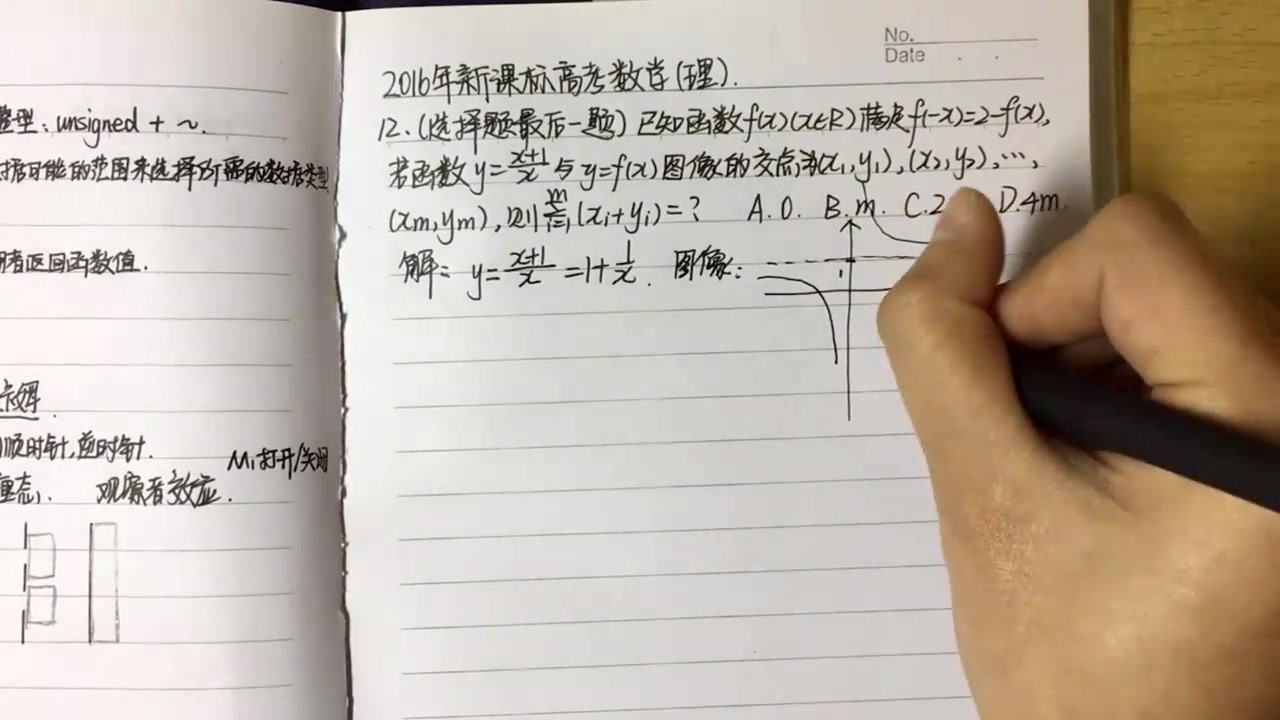 型：unsigned + ~.
可能的范围来选择所需的数据类型
返回函数值.
顺时针,逆时针.
M1打开/关闭
观察者效应.
No.
Date . .
2016年新课标高考数学(理).
12.(选择题最后一题) 已知函数f(x)(x∈R)满足f(-x)=2-f(x),
若函数y=\frac{x+1}{x}与y=f(x)图像的交点为(x₁,y₁),(x₂,y₂),…,
(xm,ym),则\sum_{i=1}^{m}(xi+yi)=? A.0. B.m. C.2 D.4m.
解：y=\frac{x+1}{x}=1+\frac{1}{x}. 图像：
1